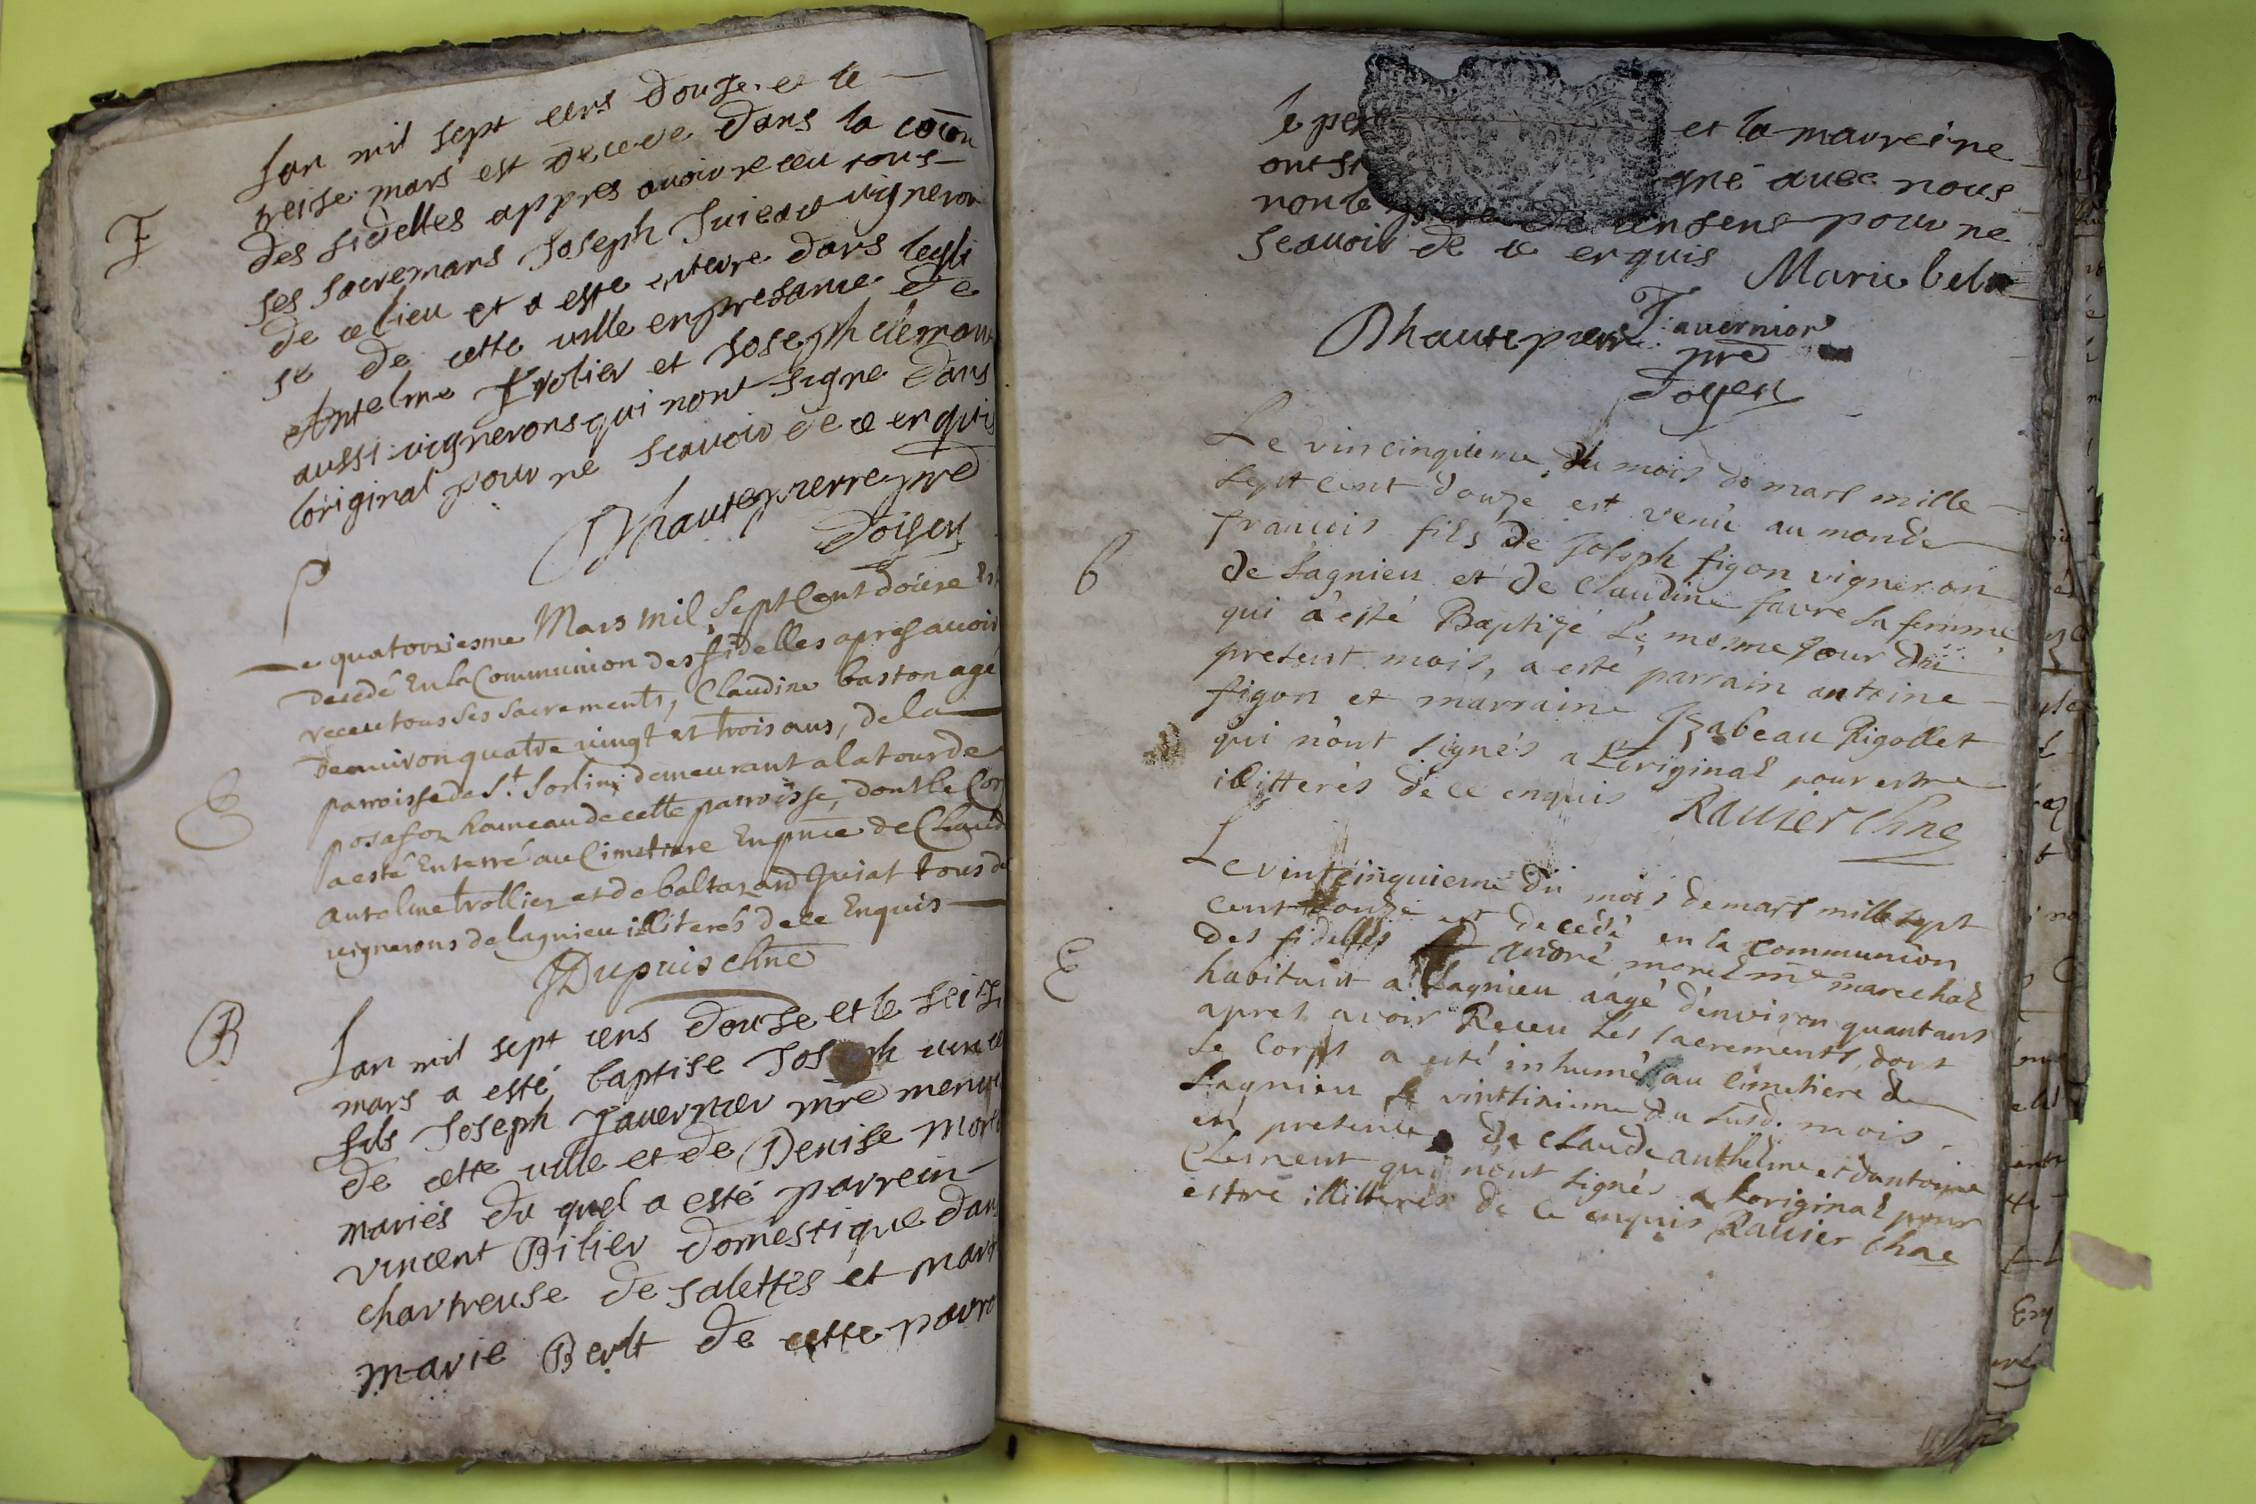 F
Lan mil sept cens douse et le
treise mars est decede dans la coion
des fidelles appres avoir receu tous
ses sacremans Joseph Juieat vigneron
de ce lieu et a este enterre dans legli
se de cette ville en presance de
Antelme Trolier et Joseph clemant
aussi vignerons qui nont signe dans
loriginal pour ne scavoir de ce enquis
Dhautepierre pre
Doyen
E
Le quatorziesme Mars mil sept Cent douze Est
decedé En la Communion des fidelles apres avoir
receu tous ses sacrements, Claudine baston agé
denuiron quatre vingt et trois ans, de la
parroisse de St. Sorlin, demeurant a la tour de
posafol hameau de cette parroisse, dont le Cor
a esté Enterré au Cimetiere En pnce de Claude
antelme trollier et de baltazard Juiat tous de
vignerons de lagnieu illiterés de ce Enquis
JDupuis chne
B
Lan mil sept cens douse et le seise
mars a esté baptise Joseph vincen
fils Joseph Tavernier mre menui
de cette ville et de Denise Morel
mariés du quel a esté parrein
vincent Bilier domestique dans
chartreuse de salettes et mar
marie Berlt de cette parro
le pere et la mavreine
ont si gné avec nous
non le pour ne
scavoir de ce enquis Marie belo
Dhautepierre Tavernior
pre
Doyen
B
Le vincinquieme du mois de mars mille
sept cent douze est venu au monde
francois fils de Joseph figon vigneron
de Lagnieu et de Claudine favre sa femme
qui a esté Baptizé le mesme jour du
present mois, a esté parrain antoine
figon et marraine Izabeau Rigollet
qui n'ont signés a L'original pour estre
illitterés de ce enquis Ravier chne
E
Le vintcinquieme du mois de mars mille sept
cent douze est decedé en la communion
des fidelles André morel mre marechal
habitant a Lagnieu aagé d'environ quant ans
apres avoir Receu les sacrements, dont
le Corps a esté inhumé au Cimetiere de
Lagnieu le vintsixieme du susd. mois
en presence de Claude anthelme et d'antoine
Clement qui n'ont signés a loriginal pour
estre illitterés de ce enquis Ravier chne